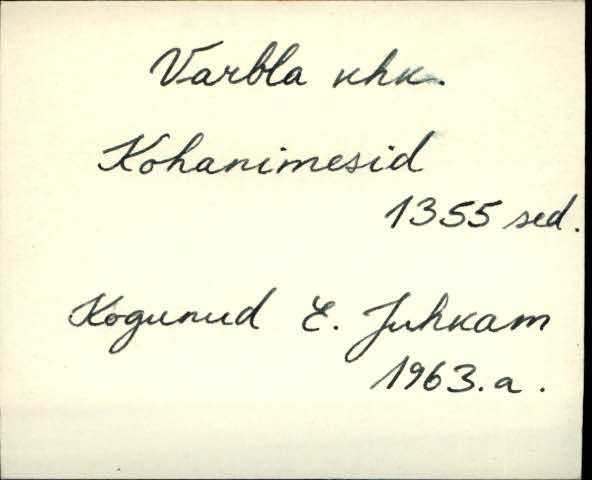 Varbla khk.
Kohanimesid
1355 sed.
Kogunud E. Juhkam
1963.a.